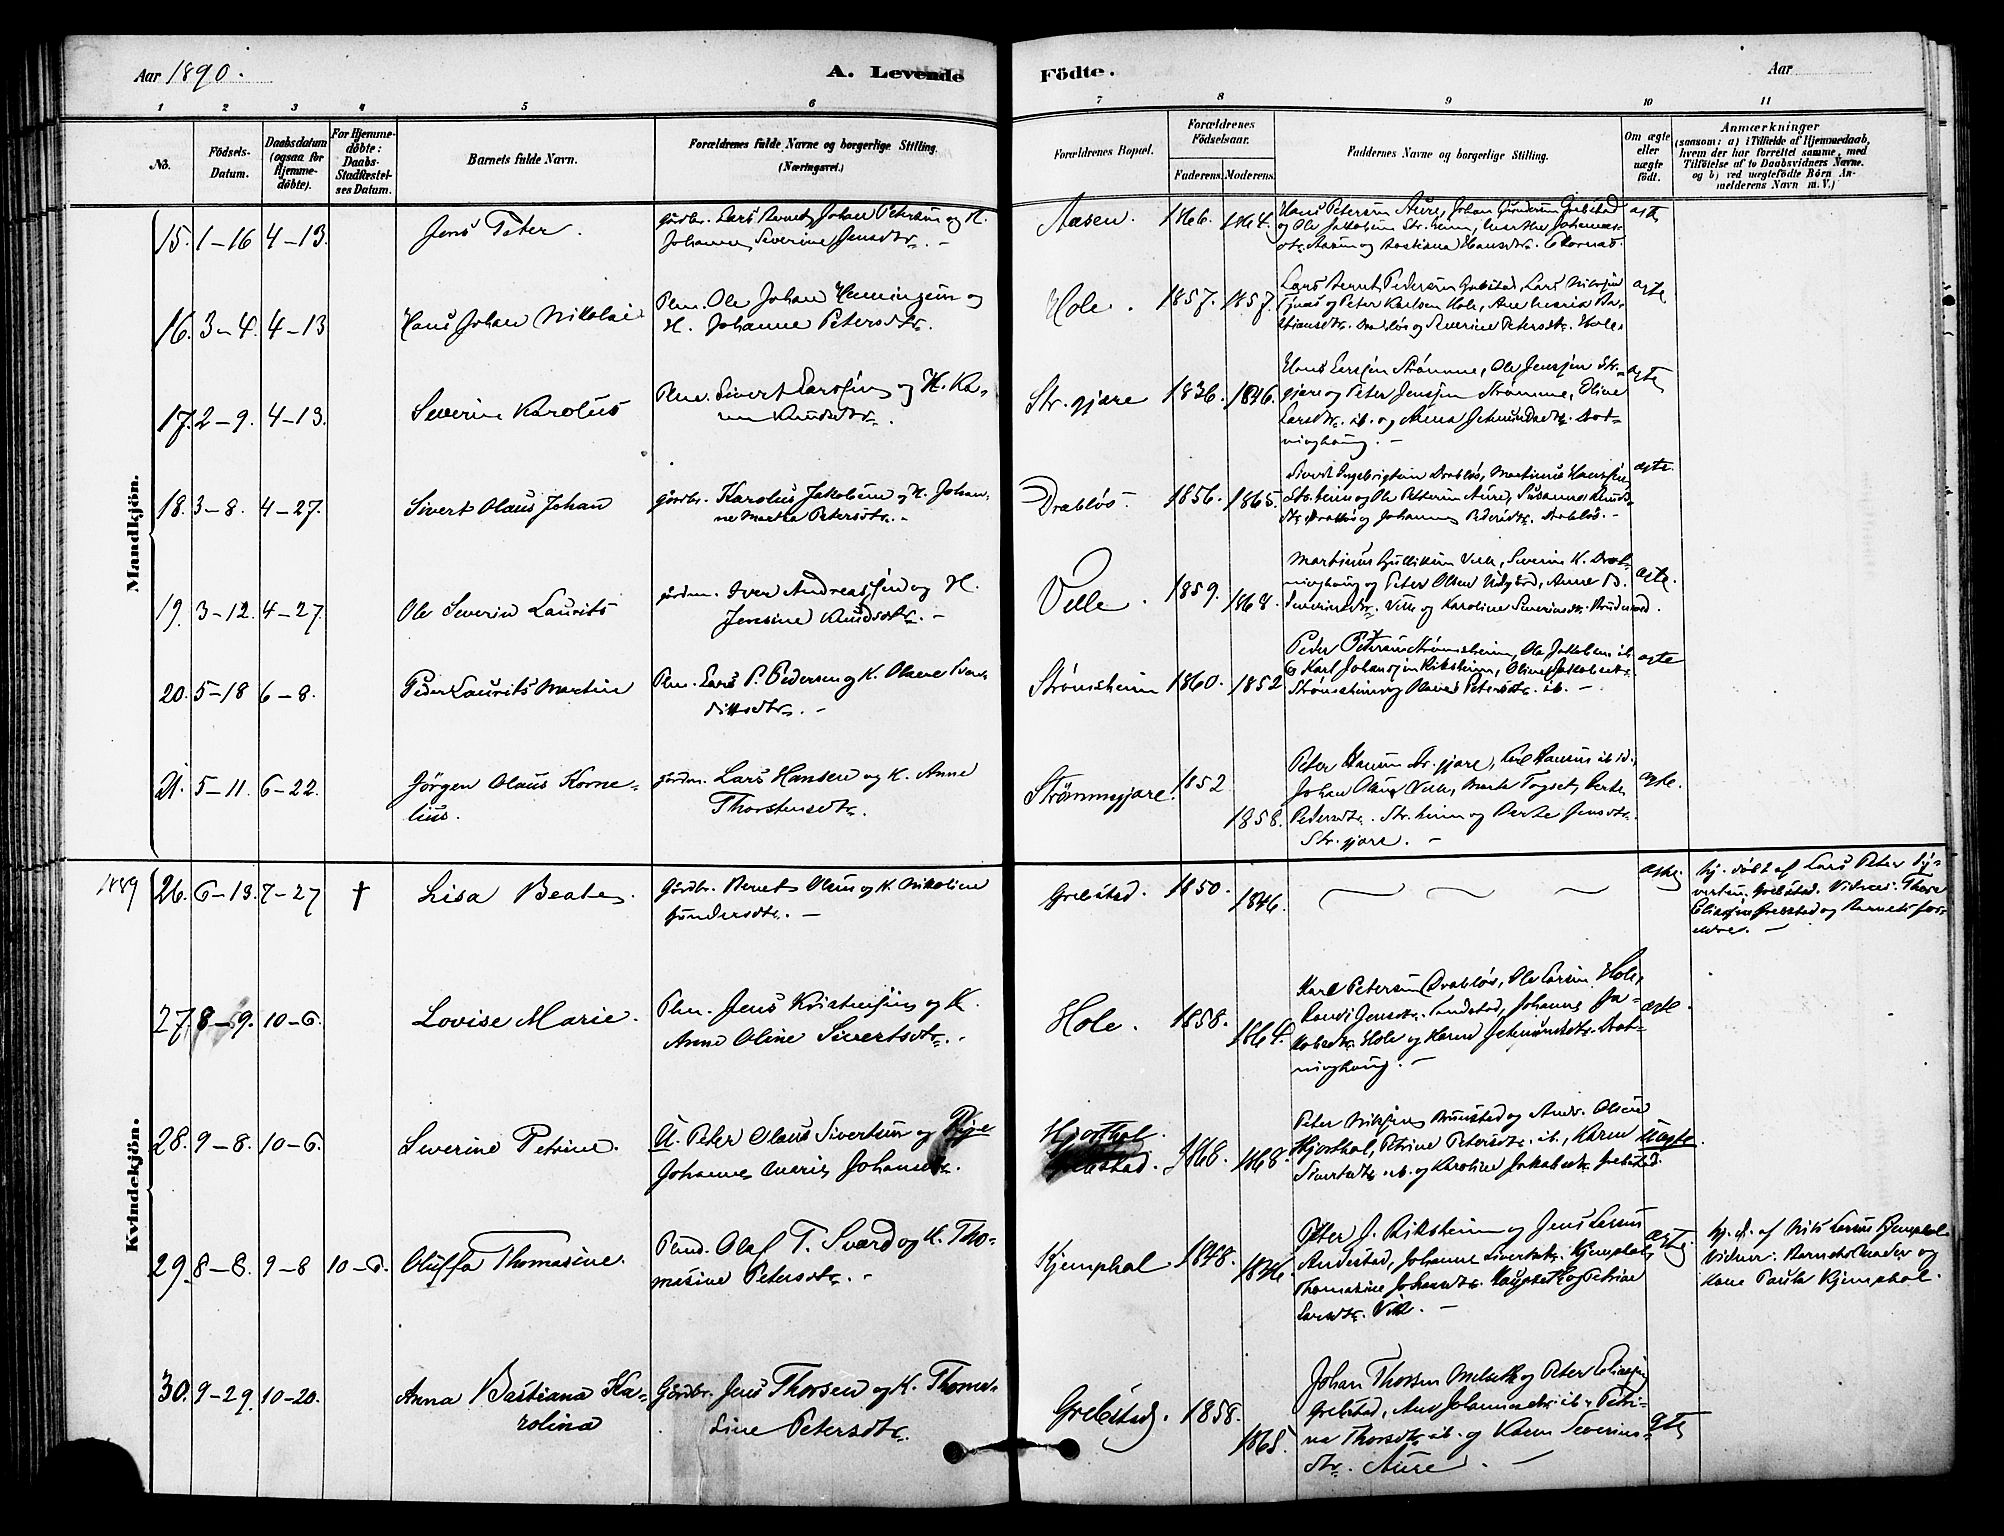 Aar 1890.
A. Levende
Födte.
Aar
1 2 3 4 5 6
7 8 9 10 11
No.
Födsels-
Datum.
Daabsdatum
(ogsaa for
Hjemme-
døbte).
For Hjemme-
døbte:
Daabs-
Stadfæstel-
ses Datum.
Barnets fulde Navn.
Forældrenes fulde Navne og borgerlige Stilling.
(Næringsvei.)
Forældrenes Bopæl.
Forældrenes
Födselsaar.
Faderens. Moderens.
Faddernes Navne og borgerlige Stilling.
Om ægte
eller
uægte
født.
Anmærkninger
(saasom: a) i Tilfælde af Hjemmedaab,
hvem der har forrettet samme, med
Tilföielse af to Daabsvidners Navne.
og b) ved uægtefödte Börn An-
melderens Navn m. V.)
Mandkjön.
15. 1-16 4-13. Jens Peter.
Gårdbr. Lars Bernt Johan Petersen og H.
Johanne Severine Jensdtr. -
Aasen. 1866. 1864.
Hans Petersen Aure, Johan Gundersen Grebstad
ægte
16. 3-4. 4-13 Hans Johan Nikolai
Plm. Ole Johan Henningsen og
H. Johanne Petersdtr.
Hole. 1857. 1857.
Lars Bernt Pedersen Grebstad, Lars Nilssen
og Peter Karlsen Hole,
Drabløs og Severine Petersdtr. Hole.
ægte
17. 2-9. 4-13. Severin Karolus
Plm. Sivert Larssen og H. Ka-
ren Knudsdtr.
Str.gjære 1836. 1846.
Hans Larssen Strømme, Ole Jenssen Str.
gjære og Peter Jenssen Strømme, Oline
Larsdtr. ib. og Anna Jetmundsdtr. Drot-
ninghaug. -
ægte
18. 3-8. 4-27. Sivert Olaus Johan
Gårdbr. Karolus Jakobsen og H. Johan-
ne Martha Petersdtr. -
Drabløs. 1856. 1865.
Sivert Ingebrigtsen Drabløs, Martinus Hanssen
Str.heim og Ole Pettersen Aure, Susanna Knuds-
dtr. Drabløs og Johanne Pedersdtr. Drabløs. -
ægte.
19. 3-12. 4-27. Ole Severin Laurits
Gårdm. Iver Andreassen og H.
Jensine Knudsdtr. -
Velle. 1859. 1868.
Martinus Gulliksen Velle, Severin K. Drot-
ninghaug og Peter Olsen
Severinsdtr. Velle og Karoline Severinsdtr.
ægte.
20. 5-18 6-8. Peder Laurits Martin
Plm. Lars P. Pedersen og K. Olave Ben-
diktsdtr. -
Strømsheim 1860. 1852
Peder Petersen Strømsheim, Ole Jakobsen ib.
Karl Johanssen Riksheim, Oline Jakobsdtr.
Strømsheim og Olave Petersdtr. ib. -
ægte
21. 5-11. 6-22. Jörgen Olaus Korne-
lius.
Gårdm. Lars Hansen og K. Anne
Thorstensdtr.
Strømmegjære. 1852 1858.
Peter Hansen Str.gjære, Karl Hansen ib.
Johan Olsen Velle,
Pedersdtr. Str.heim og Berte Jensdtr.
Str.gjære. -
ægte.
Kvindekjön.
1889
26. 6-13. 7-27 † Lisa Beate.
Gårdbr. Bernt Olsen og K. Nikoline
Gundersdtr. -
Grebstad. 1850. 1846.
ægte
Hj. døbt af Lars Peter Sy-
vertsen Grebstad. Vidner: Thore
Eliassen Grebstad og Barnets for-
ældre. -
27. 8-9. 10-6. Lovise Marie.
Plm. Jens Kristensen og K.
Anne Oline Sivertsdtr. -
Hole. 1858. 1864.
Karl Petersen Drabløs, Ole Larsen Hole,
Randi Jensdtr. Sandstad, Johanne Ja-
kobsdtr. Hole og Karen Jetmundsdtr. Drot-
ninghaug. -
ægte.
28. 9-8. 10-6. Severine Petrine.
U. Peter Olaus Sivertsen og Pige
Johanne Marie Johansdtr.
Hjorthol.
Grebstad. 1868. 1868.
Peter Nilssen Brunstad og Andr. Olsen
Hjorthol, Petrine Petersdtr. ib., Karen
Sivertsdtr. ib. og Karoline Jakobsdtr. Grebstad.
Uægte
29. 8-8. 9-8 10-6. Oluffa Thomasine.
Plmd. Olaf T. Sværd og K. Tho-
masine Petersdtr. -
Kjemphol 1848. 1846.
Peter J. Riksheim og Jens Larsen
Andestad, Johanne Sivertsdtr. Kjemphol,
Thomasine Johansdtr. og Petrine
Larsdtr. Velle. -
ægte
Hj. d. af Nils Larsen Kjemphol
Vidner: Barnets Moder og
Kone Paula Kjemphol.
30. 9-29. 10-20. Anna Bastiana Ka-
rolina
Gårdbr. Jens Thorsen og K. Thoma-
sine Petersdtr.
Grebstad. 1858. 1865.
Johan Thorsen og Peter Eliassen
Grebstad, Ane Johannesdtr. ib. Petri-
ne Thorsdtr. ib. og Karen Severins-
dtr. Aure. -
ægte